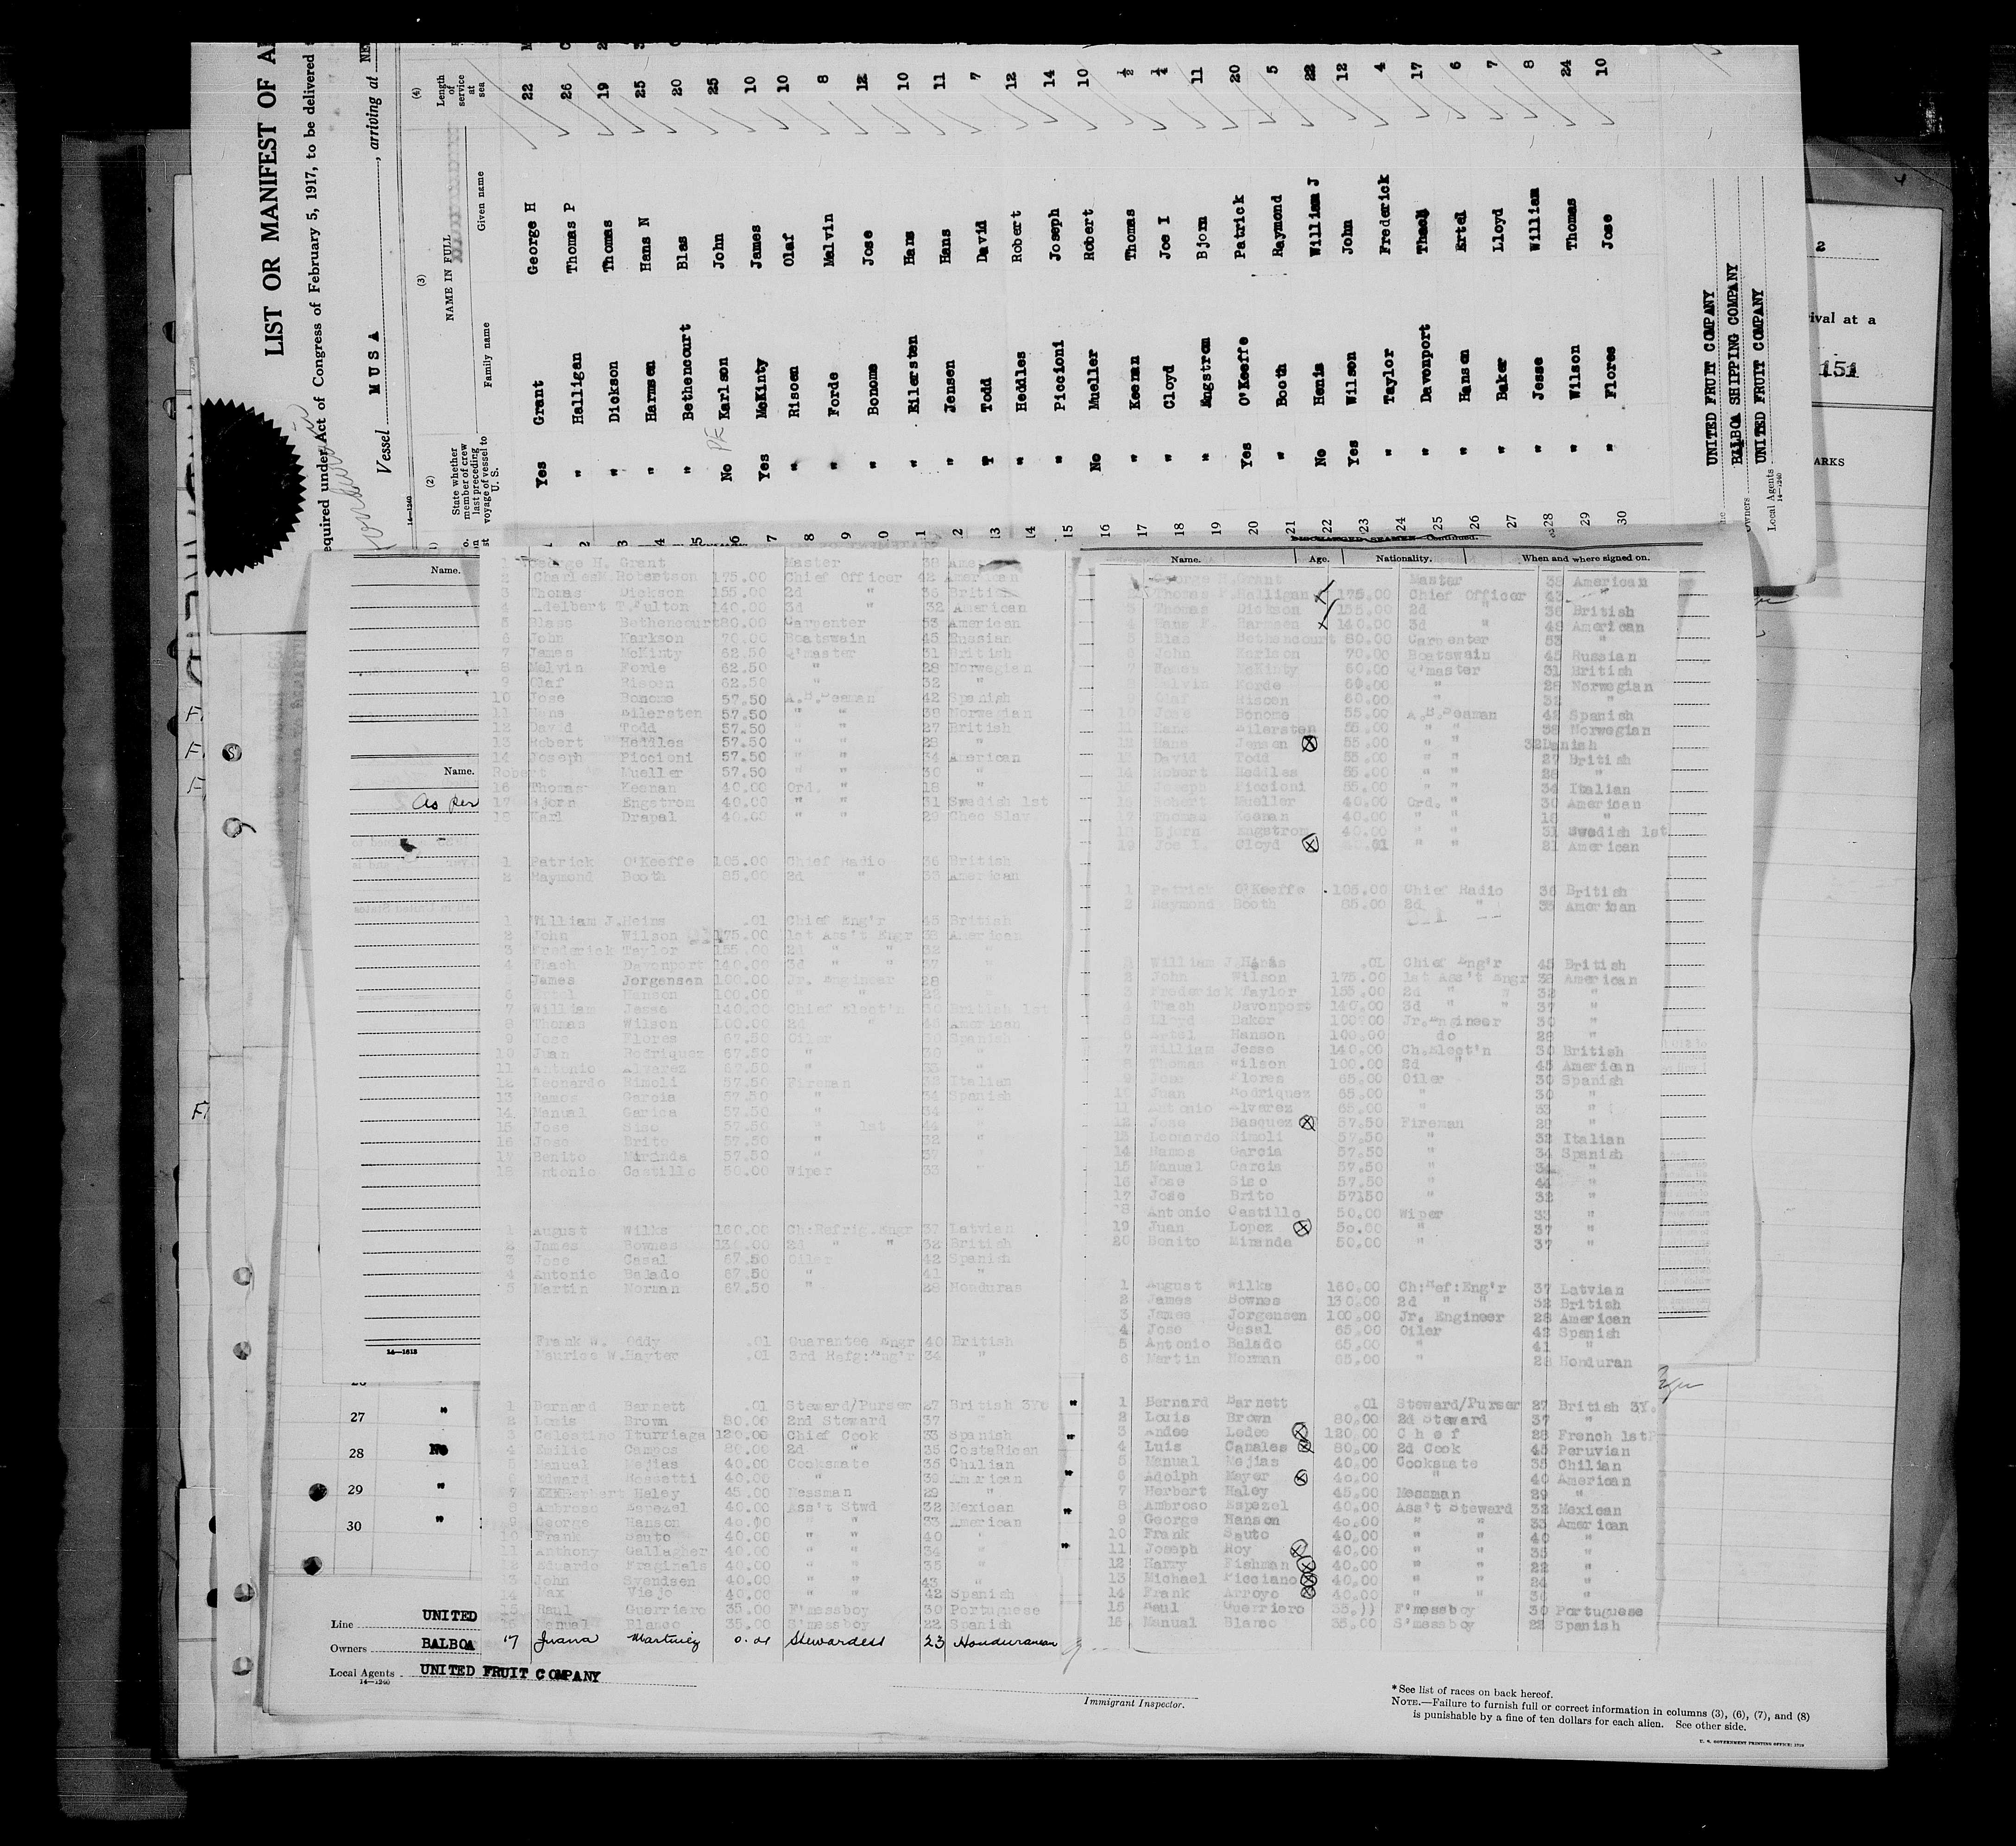 LIST OR MANIFEST OF AL
equired under Act of Congress of February 5, 1917, to be delivered
Vessel MUSA , arriving at NE
(2) (3) (4)
State whether member of crew last preceding voyage of vessel to U. S.
NAME IN FULL
Family name Given name
Length of service at sea
1 Yes Grant George H 22
2 " Halligan Thomas P 26
3 " Dickson Thomas 19
4 " Harmsen Hans N 25
5 " Bethencourt Blas 20
6 No Karlson John 25
7 Yes McKinty James 10
8 " Riseen Olaf 10
9 " Forde Melvin 8
10 " Bonome Jose 12
11 " Eilersten Hans 10
12 " Jensen Hans 11
13 " Todd David 7
14 " Heddles Robert 12
15 " Piccioni Joseph 14
16 No Mueller Robert 10
17 " Keenan Thomas ½
18 " Cloyd Joe I ¼
19 " Engstrom Bjorn 11
20 Yes O'Keeffe Patrick 20
21 " Booth Raymond 5
22 No Henis William J 22
23 Yes Wilson John 12
24 " Taylor Frederick 4
25 " Davonport Thach 17
26 " Hansen Ertel 6
27 " Baker Lloyd 7
28 " Jesse William 8
29 " Wilson Thomas 24
30 " Flores Jose 10
UNITED FRUIT COMPANY
Owners BALBOA SHIPPING COMPANY
Local Agents UNITED FRUIT COMPANY
14—1240
2
ival at a
151
ARKS
Name.
Name.
As per
14—1613
1 George H. Grant Master 38 Ame
2 Charles M. Robertson 175.00 Chief Officer 42 American
3 Thomas Dickson 155.00 2d " 36 British
4 Adelbert T. Fulton 140.00 3d " 32 American
5 Blass Bethencourt 80.00 Carpenter 53 American
6 John Karlson 70.00 Boatswain 45 Russian
7 James McKinty 62.50 Q'master 31 British
8 Melvin Forde 62.50 " 28 Norwegian
9 Olaf Riseen 62.50 " 32 "
10 Jose Bonome 57.50 A.B.Seaman 42 Spanish
11 Hans Eilersten 57.50 " " 38 Norwegian
12 David Todd 57.50 " " 27 British
13 Robert Heddles 57.50 " " 28 "
14 Joseph Piccioni 57.50 " " 34 American
Robert Mueller 57.50 " " 30 "
16 Thomas Keenan 40.00 Ord. " 18 "
17 Bjorn Engstrom 40.00 " " 31 Swedish 1st
18 Karl Drapal 40.00 " " 29 Chec Slav.
1 Patrick O'Keeffe 105.00 Chief Radio 36 British
2 Raymond Booth 85.00 2d " 33 American
1 William J. Heins .01 Chief Eng'r 45 British
2 John Wilson 175.00 1st Ass't Engr 38 American
3 Frederick Taylor 155.00 2d " " 32 "
4 Thach Davonport 140.00 3d " " 37 "
James Jorgensen 100.00 Jr. Engineer 28 "
6 Ertel Hanson 100.00 " 28 "
7 William Jesse 140.00 Chief Elect'n 30 British 1st
8 Thomas Wilson 100.00 2d " 45 American
9 Jose Flores 67.50 Oiler 30 Spanish
10 Juan Rodriquez 67.50 " 30 "
11 Antonio Alvarez 67.50 " 33 "
12 Leonardo Rimoli 57.50 Fireman 32 Italian
13 Ramos Garcia 57.50 " 34 Spanish
14 Manual Garica 57.50 " 34 "
15 Jose Siso 57.50 " 1st 44 "
16 Jose Brito 57.50 " 32 "
17 Benito Miranda 57.50 " 37 "
18 Antonio Castillo 50.00 Wiper 33 "
1 August Wilks 160.00 Ch:Refrig.Engr 37 Latvian
2 James Bownes 130.00 2d " " 32 British
3 Jose Casal 67.50 Oiler 42 Spanish
4 Antonio Balado 67.50 " 41 "
5 Martin Norman 67.50 " 28 Honduras
Frank W. Oddy .01 Guarantee Engr 40 British
Maurice W. Hayter .01 3rd Refg:Eng'r 34 "
1 Bernard Barnett .01 Steward/Purser 27 British
2 Louis Brown 80.00 2nd Steward 37 "
3 Celestino Iturriaga 120.00 Chief Cook 33 Spanish
4 Emilio Campos 80.00 2d " 35 CostaRican
5 Manual Mejias 40.00 Cooksmate 35 Chilian
6 Edward Rossetti 40.00 " 39 American
7 Herbert Haley 45.00 Messman 29 "
8 Ambroso Espezel 40.00 Ass't Stwd 32 Mexican
9 George Hanson 40.00 " " 33 American
10 Frank Sauto 40.00 " " 40 "
11 Anthony Gallagher 40.00 " " 34 "
12 Eduardo Fraginals 40.00 " " 35 "
13 John Svendsen 40.00 " " 43 "
14 Max Viejo 40.00 " " 42 Spanish
15 Raul Guerriero 35.00 F'messboy 30 Portuguese
16 Manual Blanco 35.00 S'messboy 22 Spanish
17 Juana Martinez 0.01 Stewardess 23 Honduranean
DISCHARGED SEAMEN—Continued.
Name. Age. Nationality. When and where signed on.
George H. Grant Master 38 American
2 Thomas P. Halligan 175.00 Chief Officer 43 "
3 Thomas Dickson 155.00 2d " 36 British
4 Hans N. Harmsen 140.00 3d " 48 American
5 Blas Bethencourt 80.00 Carpenter 53 "
6 John Karlson 70.00 Boatswain 45 Russian
7 James McKinty 60.00 Q'master 31 British
Melvin Forde 60.00 " 28 Norwegian
Olaf Riseen 60.00 " 32 "
10 Jose Bonome 55.00 A.B.Seaman 42 Spanish
11 Hans Eilersten 55.00 " " 38 Norwegian
12 Hans Jensen 55.00 " " 32 Danish
13 David Todd 55.00 " " 27 British
14 Robert Heddles 55.00 " " 28 "
15 Joseph Piccioni 55.00 " " 34 Italian
Robert Mueller 40.00 Ord. " 30 American
17 Thomas Keenan 40.00 " " 18 "
18 Bjorn Engstrom 40.00 " " 31 Swedish 1st
19 Joe I. Cloyd .01 " " 21 American
1 Patrick O'Keeffe 105.00 Chief Radio 36 British
2 Raymond Booth 85.00 2d " 33 American
William J. Henis .01 Chief Eng'r 45 British
2 John Wilson 175.00 1st Ass't Engr 38 American
3 Frederick Taylor 155.00 2d " " 32 "
4 Thach Davonport 140.00 3d " " 37 "
5 Lloyd Baker 100.00 Jr.Engineer 30 "
6 Ertel Hanson 100.00 do 28 "
7 William Jesse 140.00 Ch.Elect'n 30 British
8 Thomas Wilson 100.00 2d " 45 American
9 Jose Flores 65.00 Oiler 30 Spanish
10 Juan Rodriquez 65.00 " 30 "
11 Antonio Alvarez 65.00 " 33 "
12 Jose Basquez 57.50 Fireman 29 "
13 Leonardo Rimoli 57.50 " 32 Italian
14 Ramos Garcia 57.50 " 34 Spanish
15 Manual Garcia 57.50 " 34 "
16 Jose Siso 57.50 " 44 "
17 Jose Brito 57.50 " 32 "
18 Antonio Castillo 50.00 Wiper 33 "
19 Juan Lopez 50.00 " 37 "
20 Benito Miranda 50.00 37 "
1 August Wilks 160.00 Ch:Ref:Eng'r 37 Latvian
2 James Bownes 130.00 2d " " 32 British
3 James Jorgensen 100.00 Jr. Engineer 28 American
4 Jose Casal 65.00 Oiler 42 Spanish
5 Antonio Balado 65.00 " 41 "
6 Martin Norman 65.00 " 28 Honduran
1 Bernard Barnett .01 Steward/Purser 27 British 3Y.
2 Louis Brown 80.00 2d Steward 37 "
3 Andee Ledee 120.00 Chef 28 French 1st
4 Luis Canales 80.00 2d Cook 45 Peruvian
5 Manual Mejias 40.00 Cooksmate 35 Chilian
6 Adolph Mayer 40.00 " 40 American
7 Herbert Haley 45.00 Messman 29 "
8 Ambroso Espezel 40.00 Ass't Steward 32 Mexican
9 George Hanson 40.00 " " 33 American
10 Frank Sauto 40.00 " " 40 "
11 Joseph Roy 40.00 " " 35 "
12 Harry Fishman 40.00 " " 22 "
13 Michael Picciano 40.00 " " 24 "
14 Frank Arroyo 40.00 " " 36 "
15 Raul Guerriero 35.)) F'messboy 30 Portuguese
16 Manual Blanco 35.00 S'messboy 22 Spanish
27 "
28 No
29 "
30 "
Line UNITED
Owners BALBOA
Local Agents UNITED FRUIT COMPANY
14—1240
Immigrant Inspector.
* See list of races on back hereof.
NOTE.—Failure to furnish full or correct information in columns (3), (6), (7), and (8)
is punishable by a fine of ten dollars for each alien. See other side.
U. S. GOVERNMENT PRINTING OFFICE: